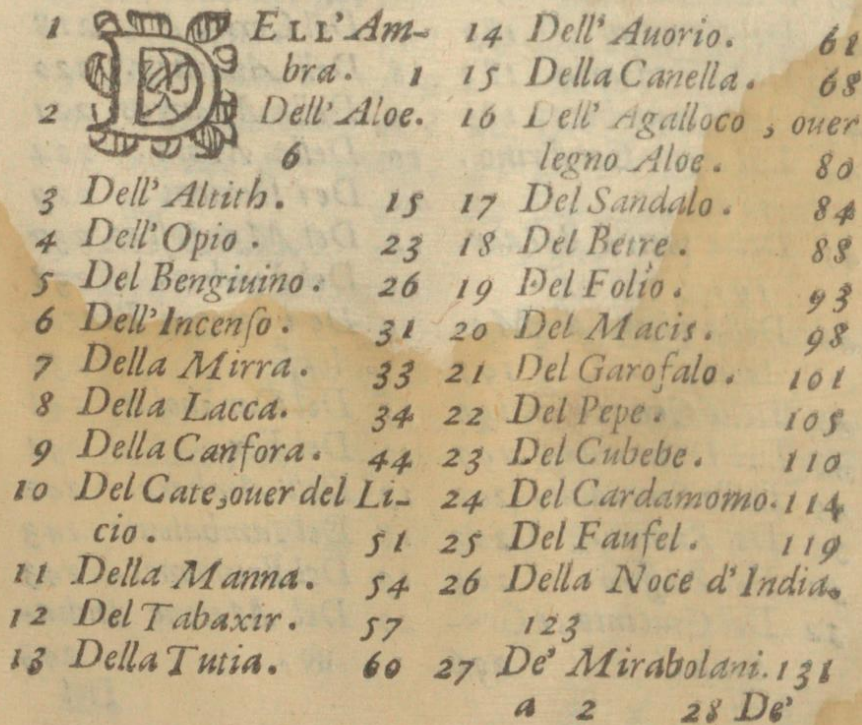 1 DELL'Am-
bra. 1
2 Dell'Aloe.
6
3 Dell'Altith. 15
4 Dell'Opio. 23
5 Del Bengiuino. 26
6 Dell'Incenſo. 31
7 Della Mirra. 33
8 Della Lacca. 34
9 Della Canfora. 44
10 Del Cate, ouer del Li-
cio. 51
11 Della Manna. 54
12 Del Tabaxir. 57
13 Della Tutia. 60
14 Dell' Auorio. 61
15 Della Canella. 68
16 Dell' Agalloco, ouer
legno Aloe. 80
17 Del Sandalo. 84
18 Del Betre. 88
19 Del Folio. 93
20 Del Macis. 98
21 Del Garofalo. 101
22 Del Pepe. 105
23 Del Cubebe. 110
24 Del Cardamomo. 114
25 Del Faufel. 119
26 Della Noce d'India.
123
27 De' Mirabolani. 131
a 2 28 De'